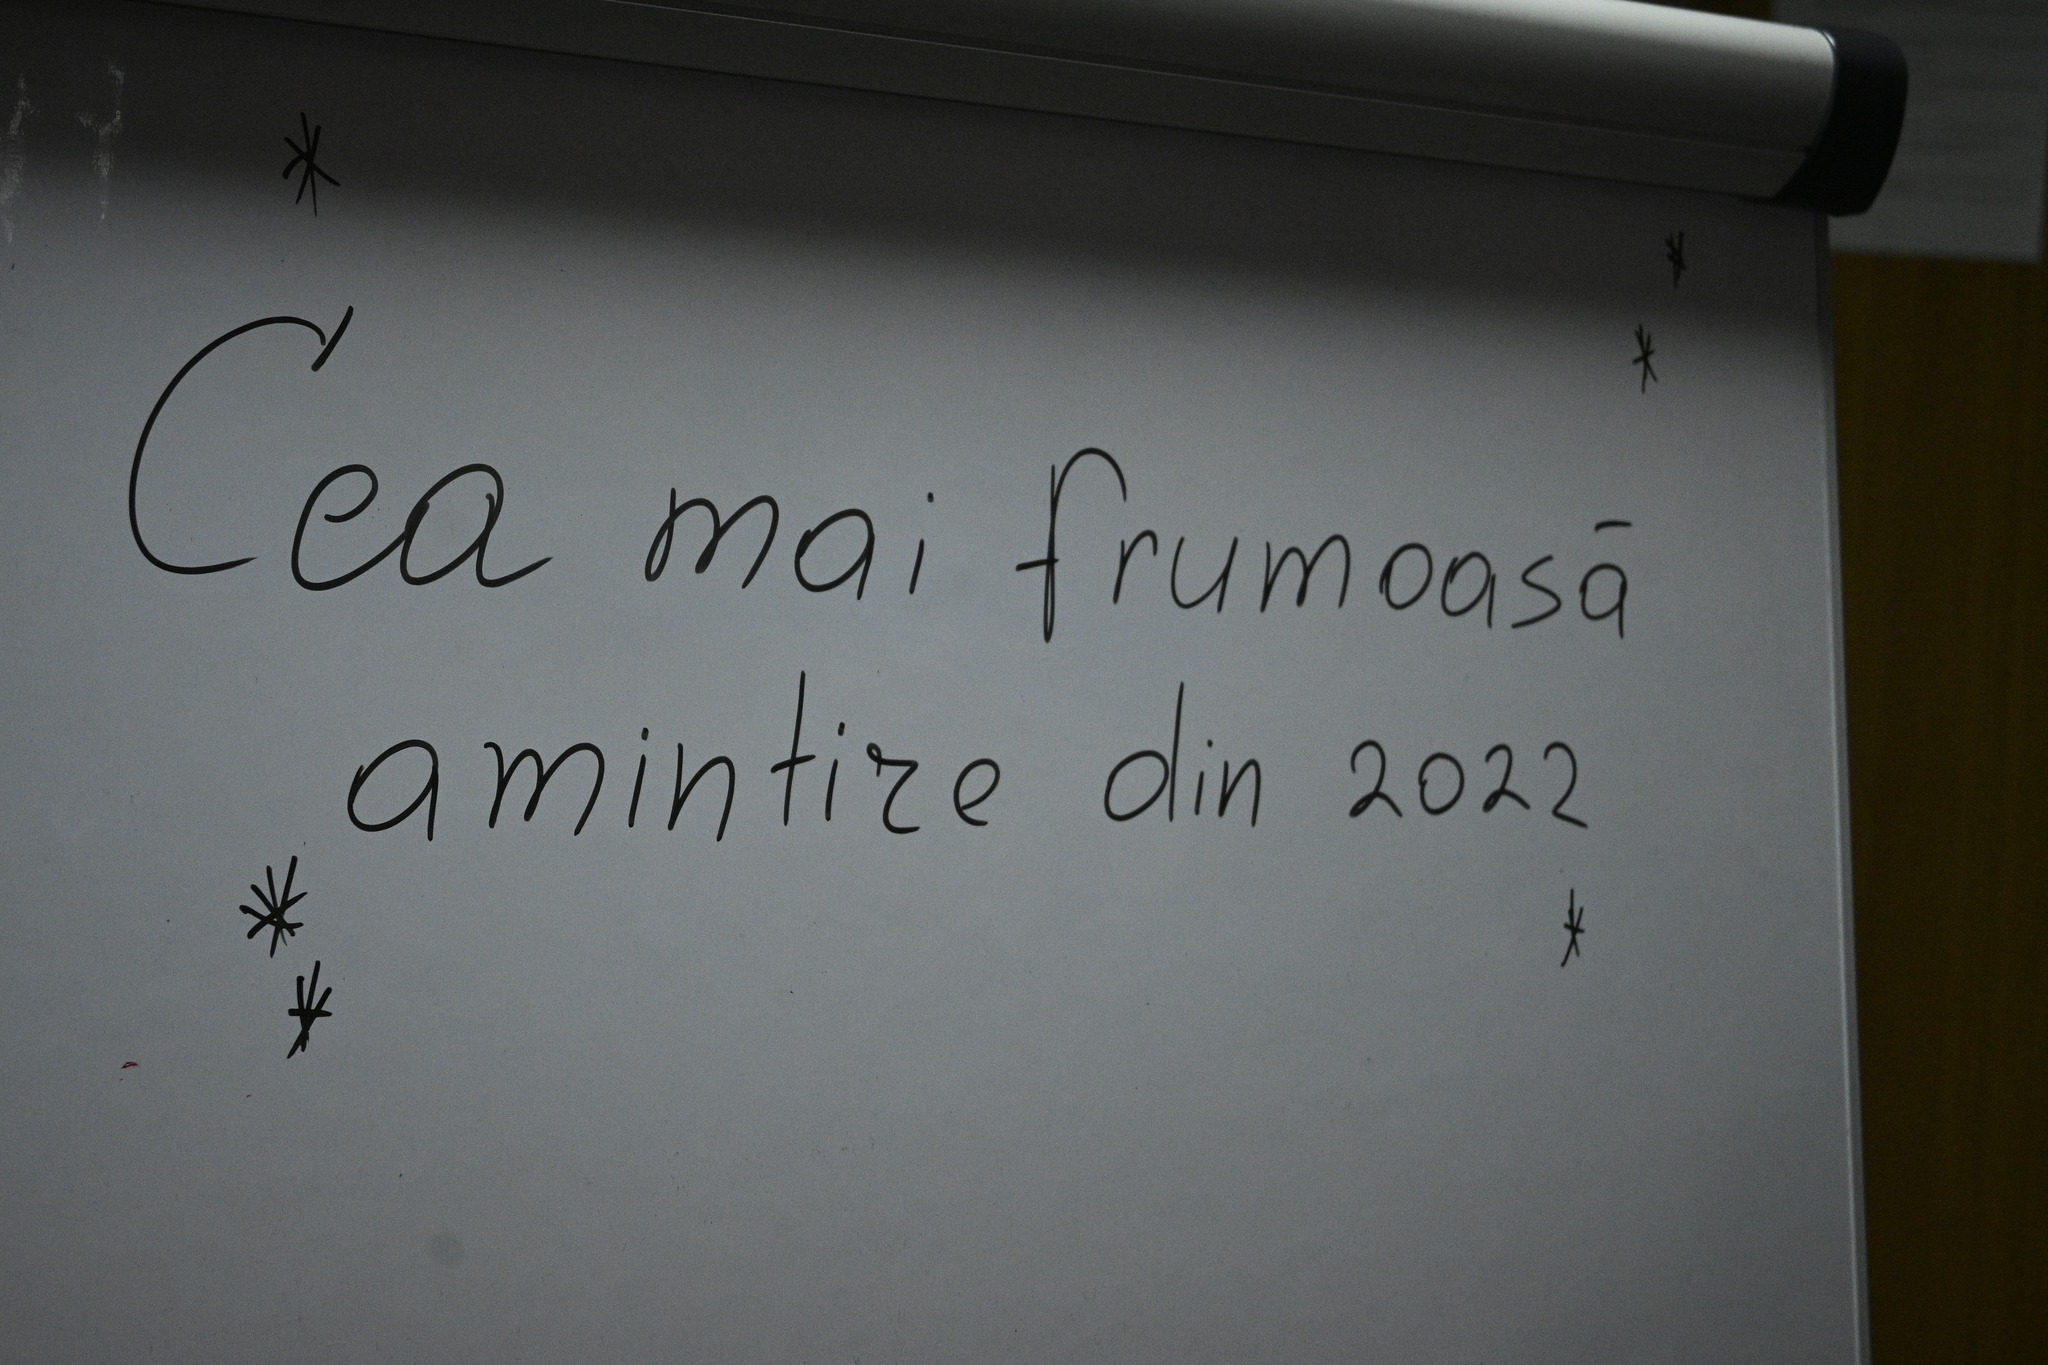 Cea mai frumoasă
amintire din 2022